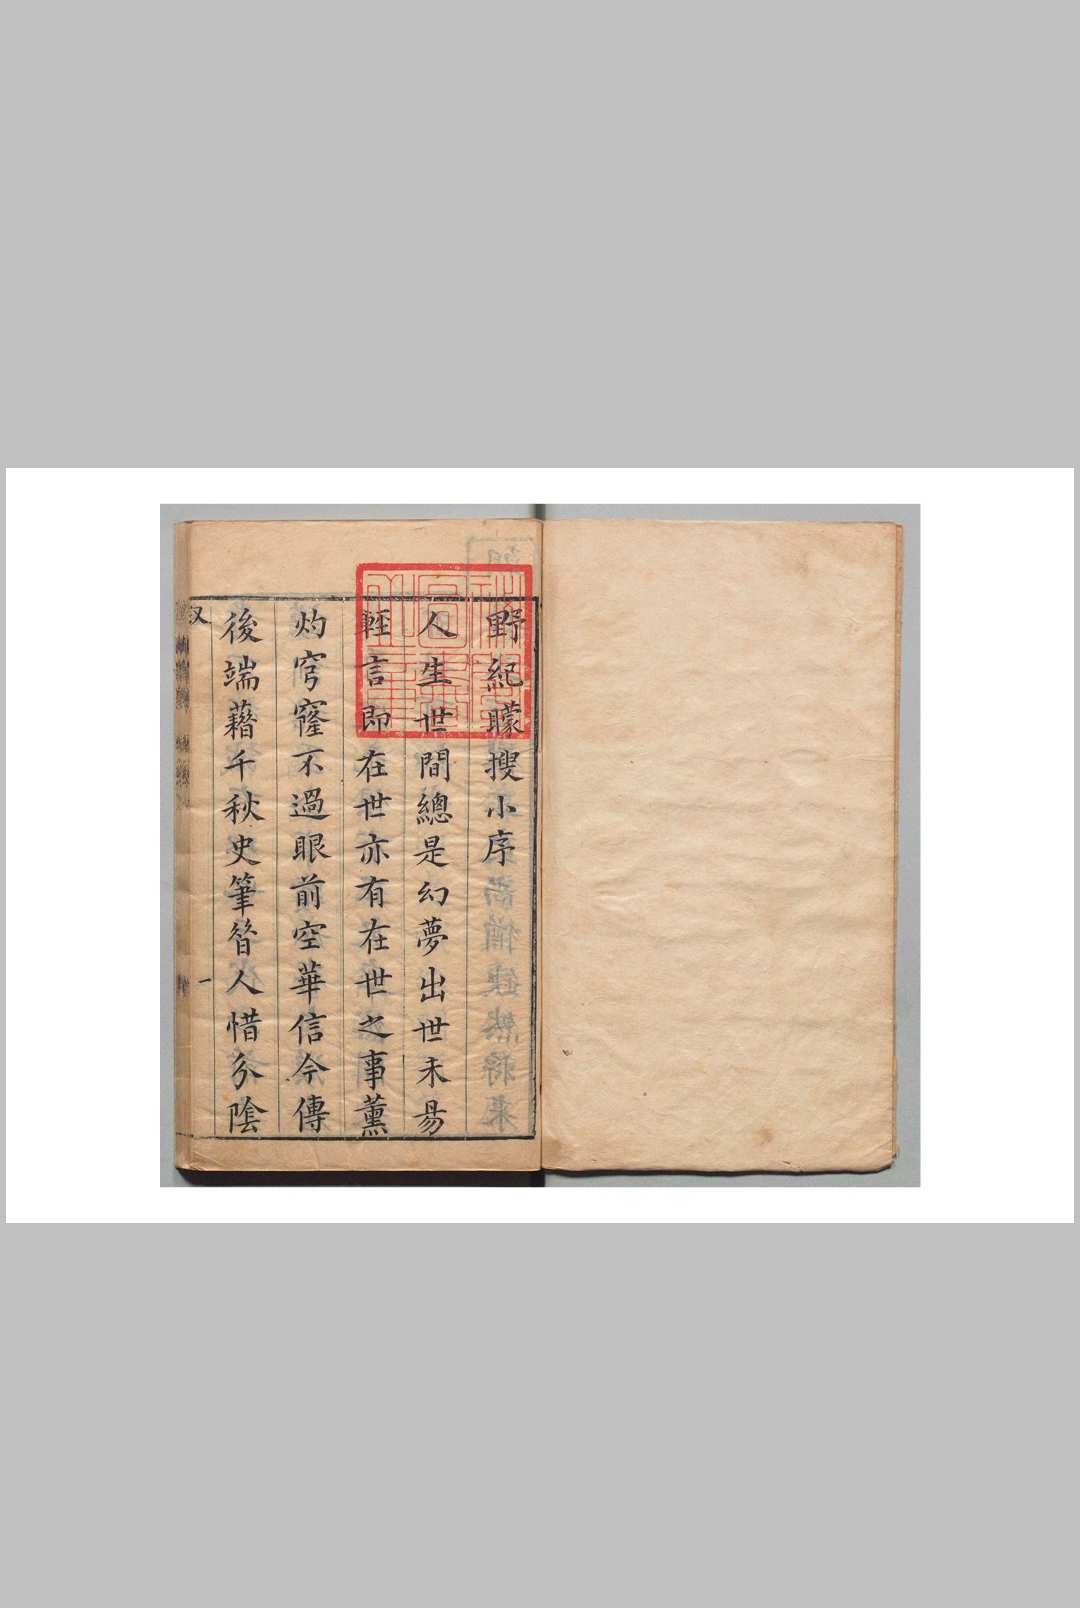 野紀矇搜小序
人生世間總是幻夢出世未易
輕言即在世亦有在世之事薰
灼穹窿不過眼前空華信今傳
後端藉千秋史筆昝人惜分陰
一